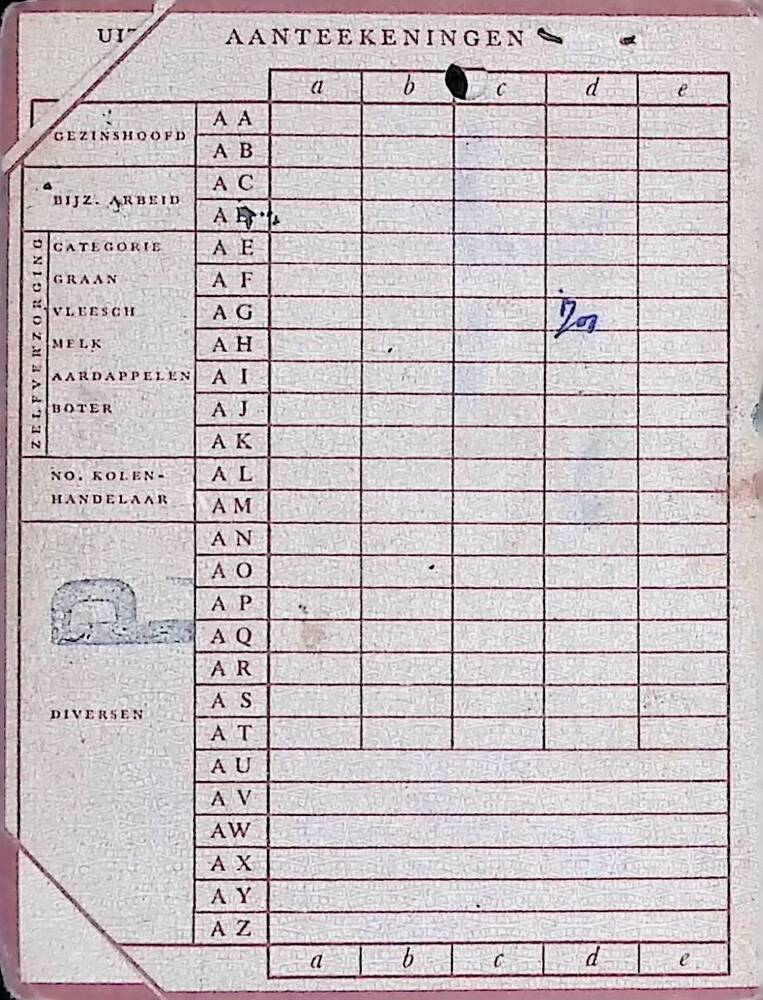 AANTEEKENINGEN
a b c d e
GEZINSHOOFD
A A
A B
BIJZ. ARBEID
A C
ZELFVERZORGING
CATEGORIE A E
GRAAN A F
VLEESCH A G
MELK A H
AARDAPPELEN A I
BOTER A J
A K
NO. KOLEN-
HANDELAAR
A L
A M
A N
A O
A P
A Q
A R
A S
DIVERSEN
A T
A U
A V
A W
A X
A Y
A Z
a b c d e